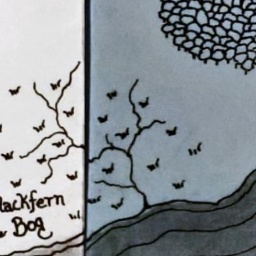 lackfern
Bog